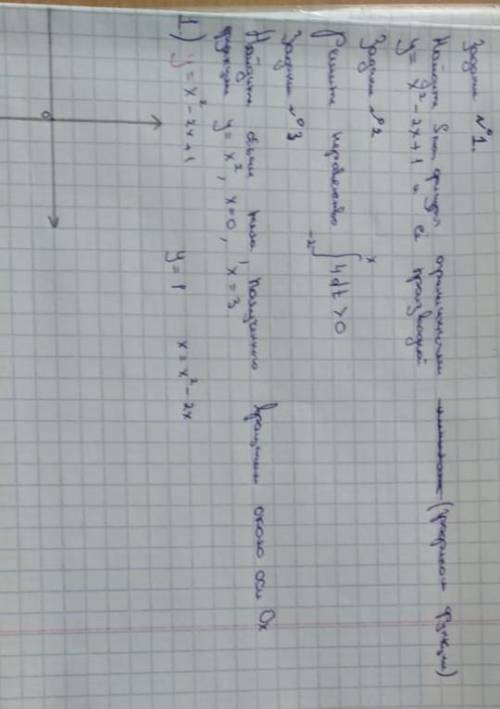 Задача №1.
Найдите S ограниченной (графиком функции)
y = x² - 2x + 1 и её производной
Задача №2
Решить неравенство ∫ 4dt > 0
x
-2
Задача №3
Найдите объём тела, полученного вращением около оси Ox
функции y = x², x = 0, x = 3
1) y = x² - 2x + 1 y = 1 x = x² - 2x
0